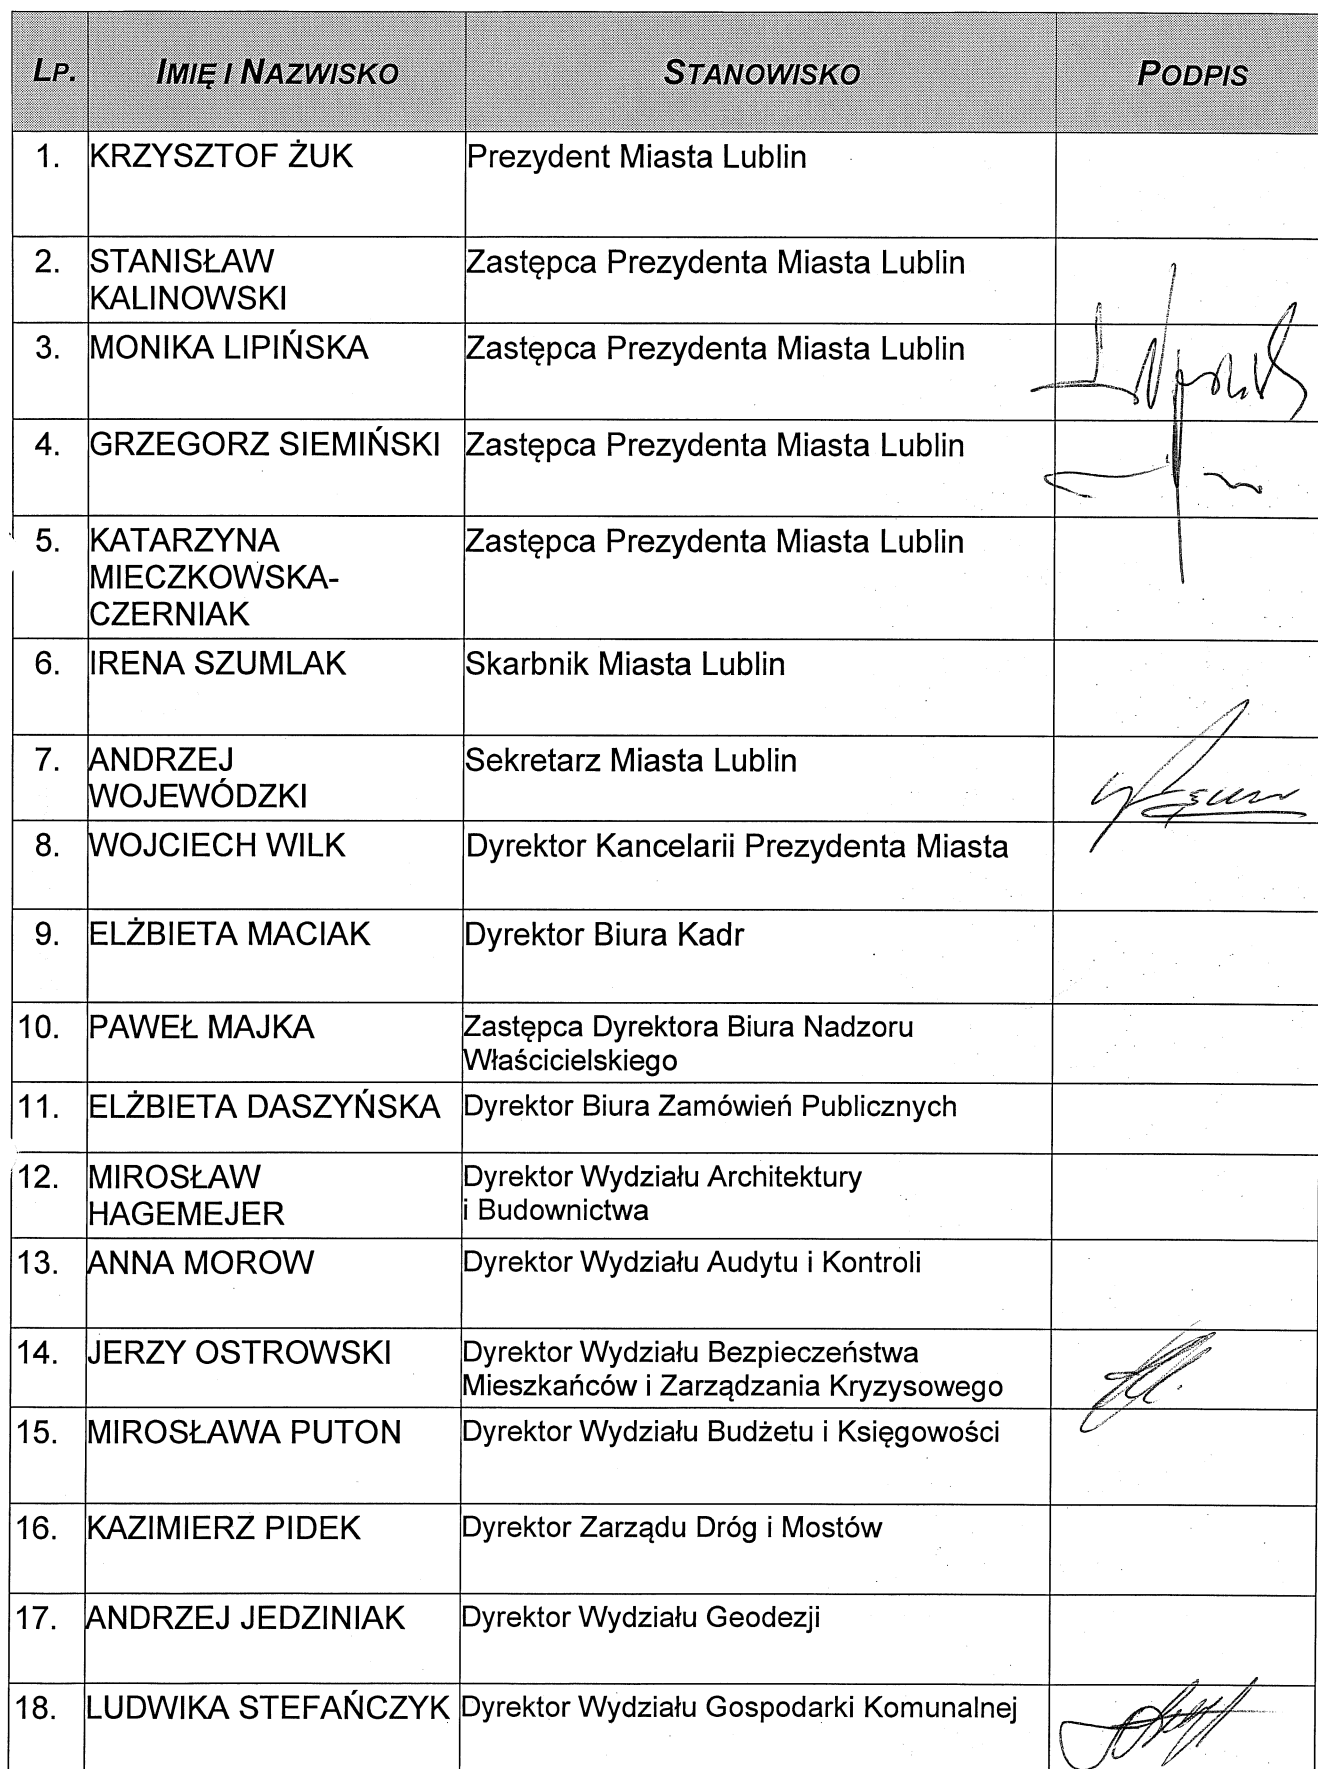 LP. IMIĘ I NAZWISKO STANOWISKO PODPIS
1. KRZYSZTOF ŻUK Prezydent Miasta Lublin
2. STANISŁAW Zastępca Prezydenta Miasta Lublin
KALINOWSKI
3. MONIKA LIPIŃSKA Zastępca Prezydenta Miasta Lublin
4. GRZEGORZ SIEMIŃSKI Zastępca Prezydenta Miasta Lublin
5. KATARZYNA Zastępca Prezydenta Miasta Lublin
MIECZKOWSKA-
CZERNIAK
6. IRENA SZUMLAK Skarbnik Miasta Lublin
7. ANDRZEJ Sekretarz Miasta Lublin
WOJEWÓDZKI
8. WOJCIECH WILK Dyrektor Kancelarii Prezydenta Miasta
9. ELŻBIETA MACIAK Dyrektor Biura Kadr
10. PAWEŁ MAJKA Zastępca Dyrektora Biura Nadzoru
Właścicielskiego
11. ELŻBIETA DASZYŃSKA Dyrektor Biura Zamówień Publicznych
12. MIROSŁAW Dyrektor Wydziału Architektury
HAGEMEJER i Budownictwa
13. ANNA MOROW Dyrektor Wydziału Audytu i Kontroli
14. JERZY OSTROWSKI Dyrektor Wydziału Bezpieczeństwa
Mieszkańców i Zarządzania Kryzysowego
15. MIROSŁAWA PUTON Dyrektor Wydziału Budżetu i Księgowości
16. KAZIMIERZ PIDEK Dyrektor Zarządu Dróg i Mostów
17. ANDRZEJ JEDZINIAK Dyrektor Wydziału Geodezji
18. LUDWIKA STEFAŃCZYK Dyrektor Wydziału Gospodarki Komunalnej